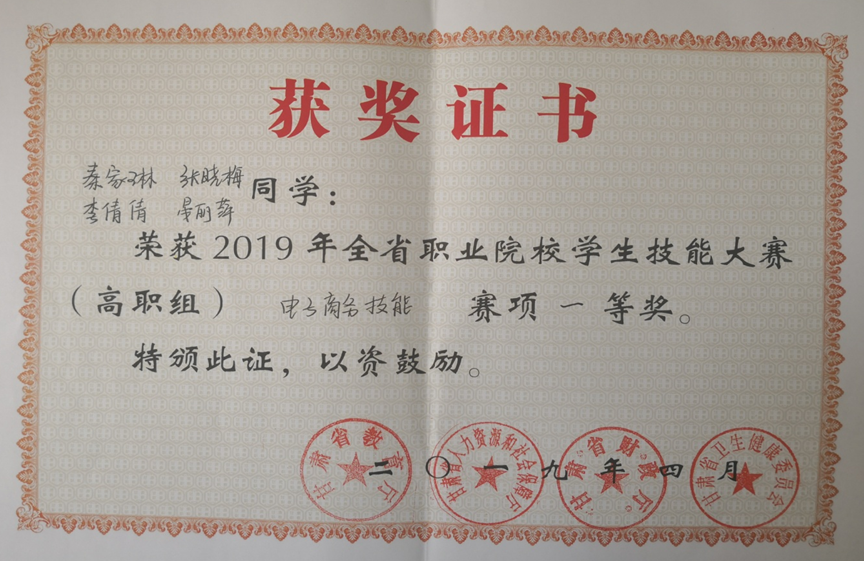 获奖证书
秦家琳 张晓梅
李倩倩 晏丽萍
同学：
荣获2019年全省职业院校学生技能大赛
（高职组） 电子商务技能 赛项一等奖。
特颁此证，以资鼓励。
甘肃省教育厅
甘肃省人力资源和社会保障厅
甘肃省财政厅
甘肃省卫生健康委员会
二〇一九年四月